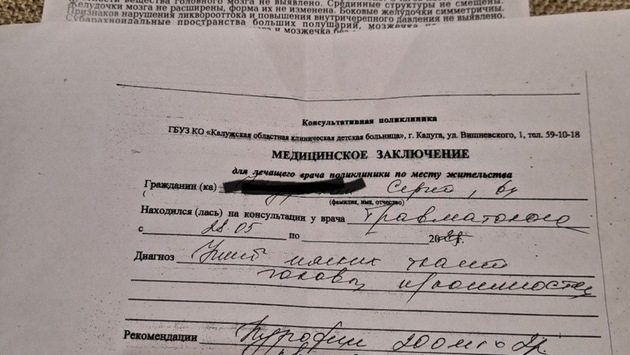 вещества головного мозга не выявлено. Срединные структуры не смещены.
Желудочки мозга не расширены, форма их не изменена. Боковые желудочки симметричны.
Признаков нарушения ликворооттока и повышения внутричерепного давления не выявлено.
Субарахноидальные пространства больших полушарий, мозжечка
и мозжечка без
Консультативная поликлиника
ГБУЗ КО «Калужская областная клиническая детская больница», г. Калуга, ул. Вишневского, 1, тел. 59-10-18
МЕДИЦИНСКОЕ ЗАКЛЮЧЕНИЕ
для лечащего врача поликлиники по месту жительства
Гражданин (ка)
(фамилия, имя, отчество)
Находился (лась) на консультации у врача Травматолога
с 28.05 по 20
Диагноз Ушиб мягких тканей
головы,
Рекомендации Нурофен 200мг